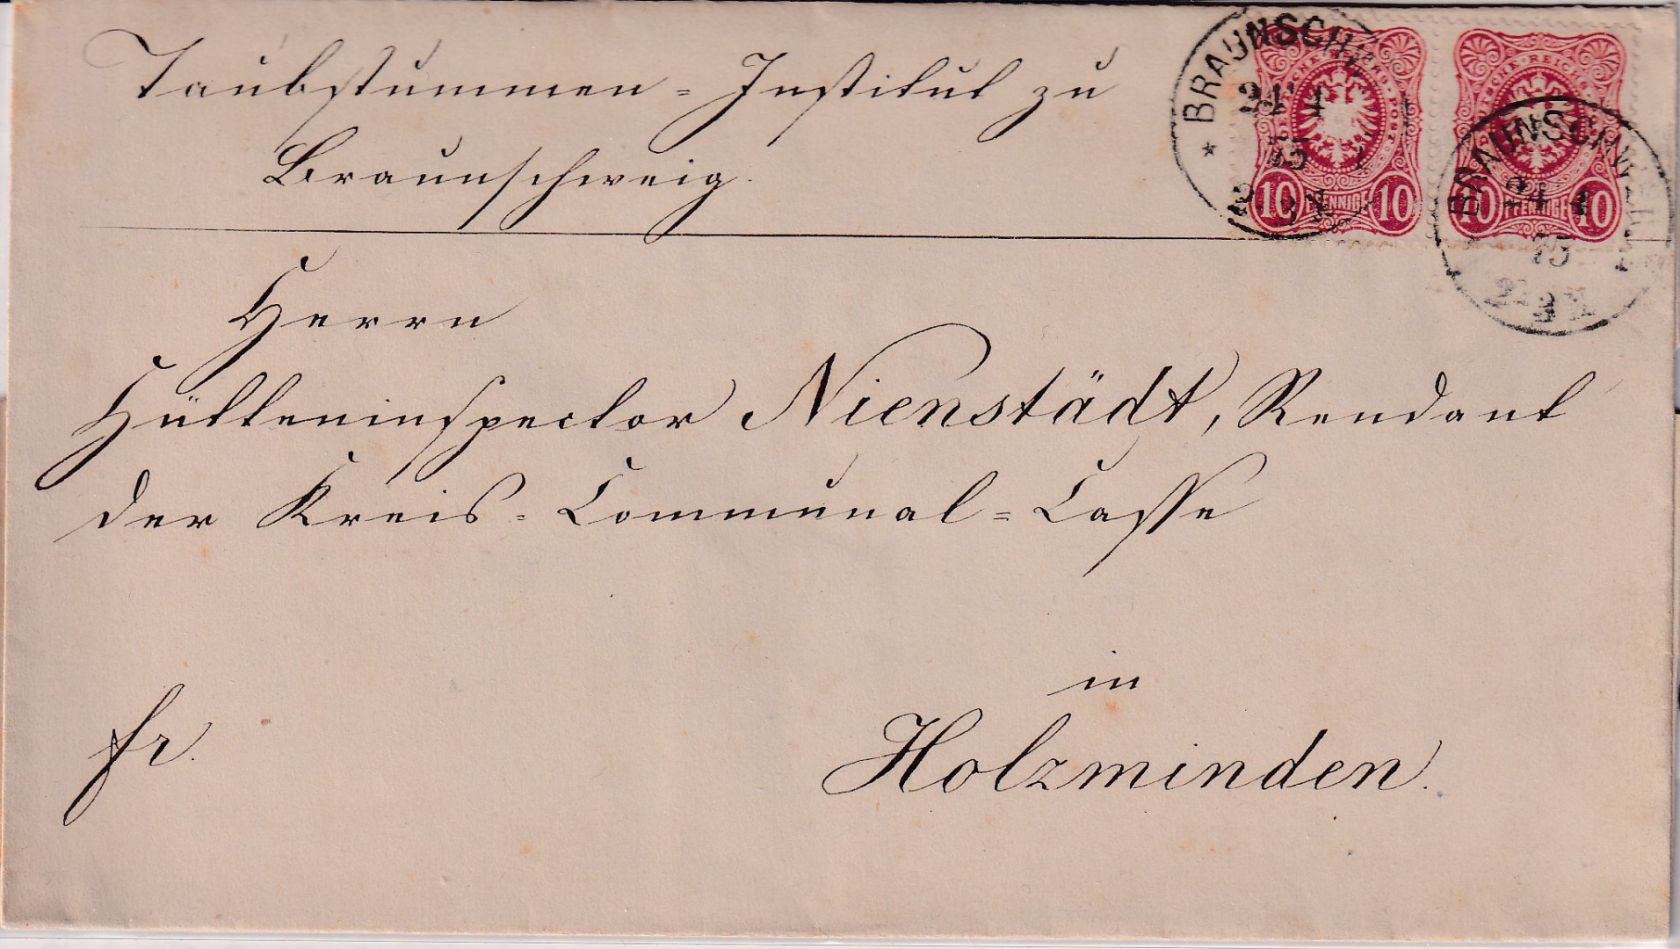 Taubstummen-Institut zu
Braunschweig.
BRAUNSCHW
24 1
75
10 PFENNIG 10
BRAUNSCHWEIG
24 1
75
10 PFENNIGE 10
Herrn
Hütteninspector Nienstädt, Rendant
der Kreis-Communal-Casse
in
fr.
Holzminden.